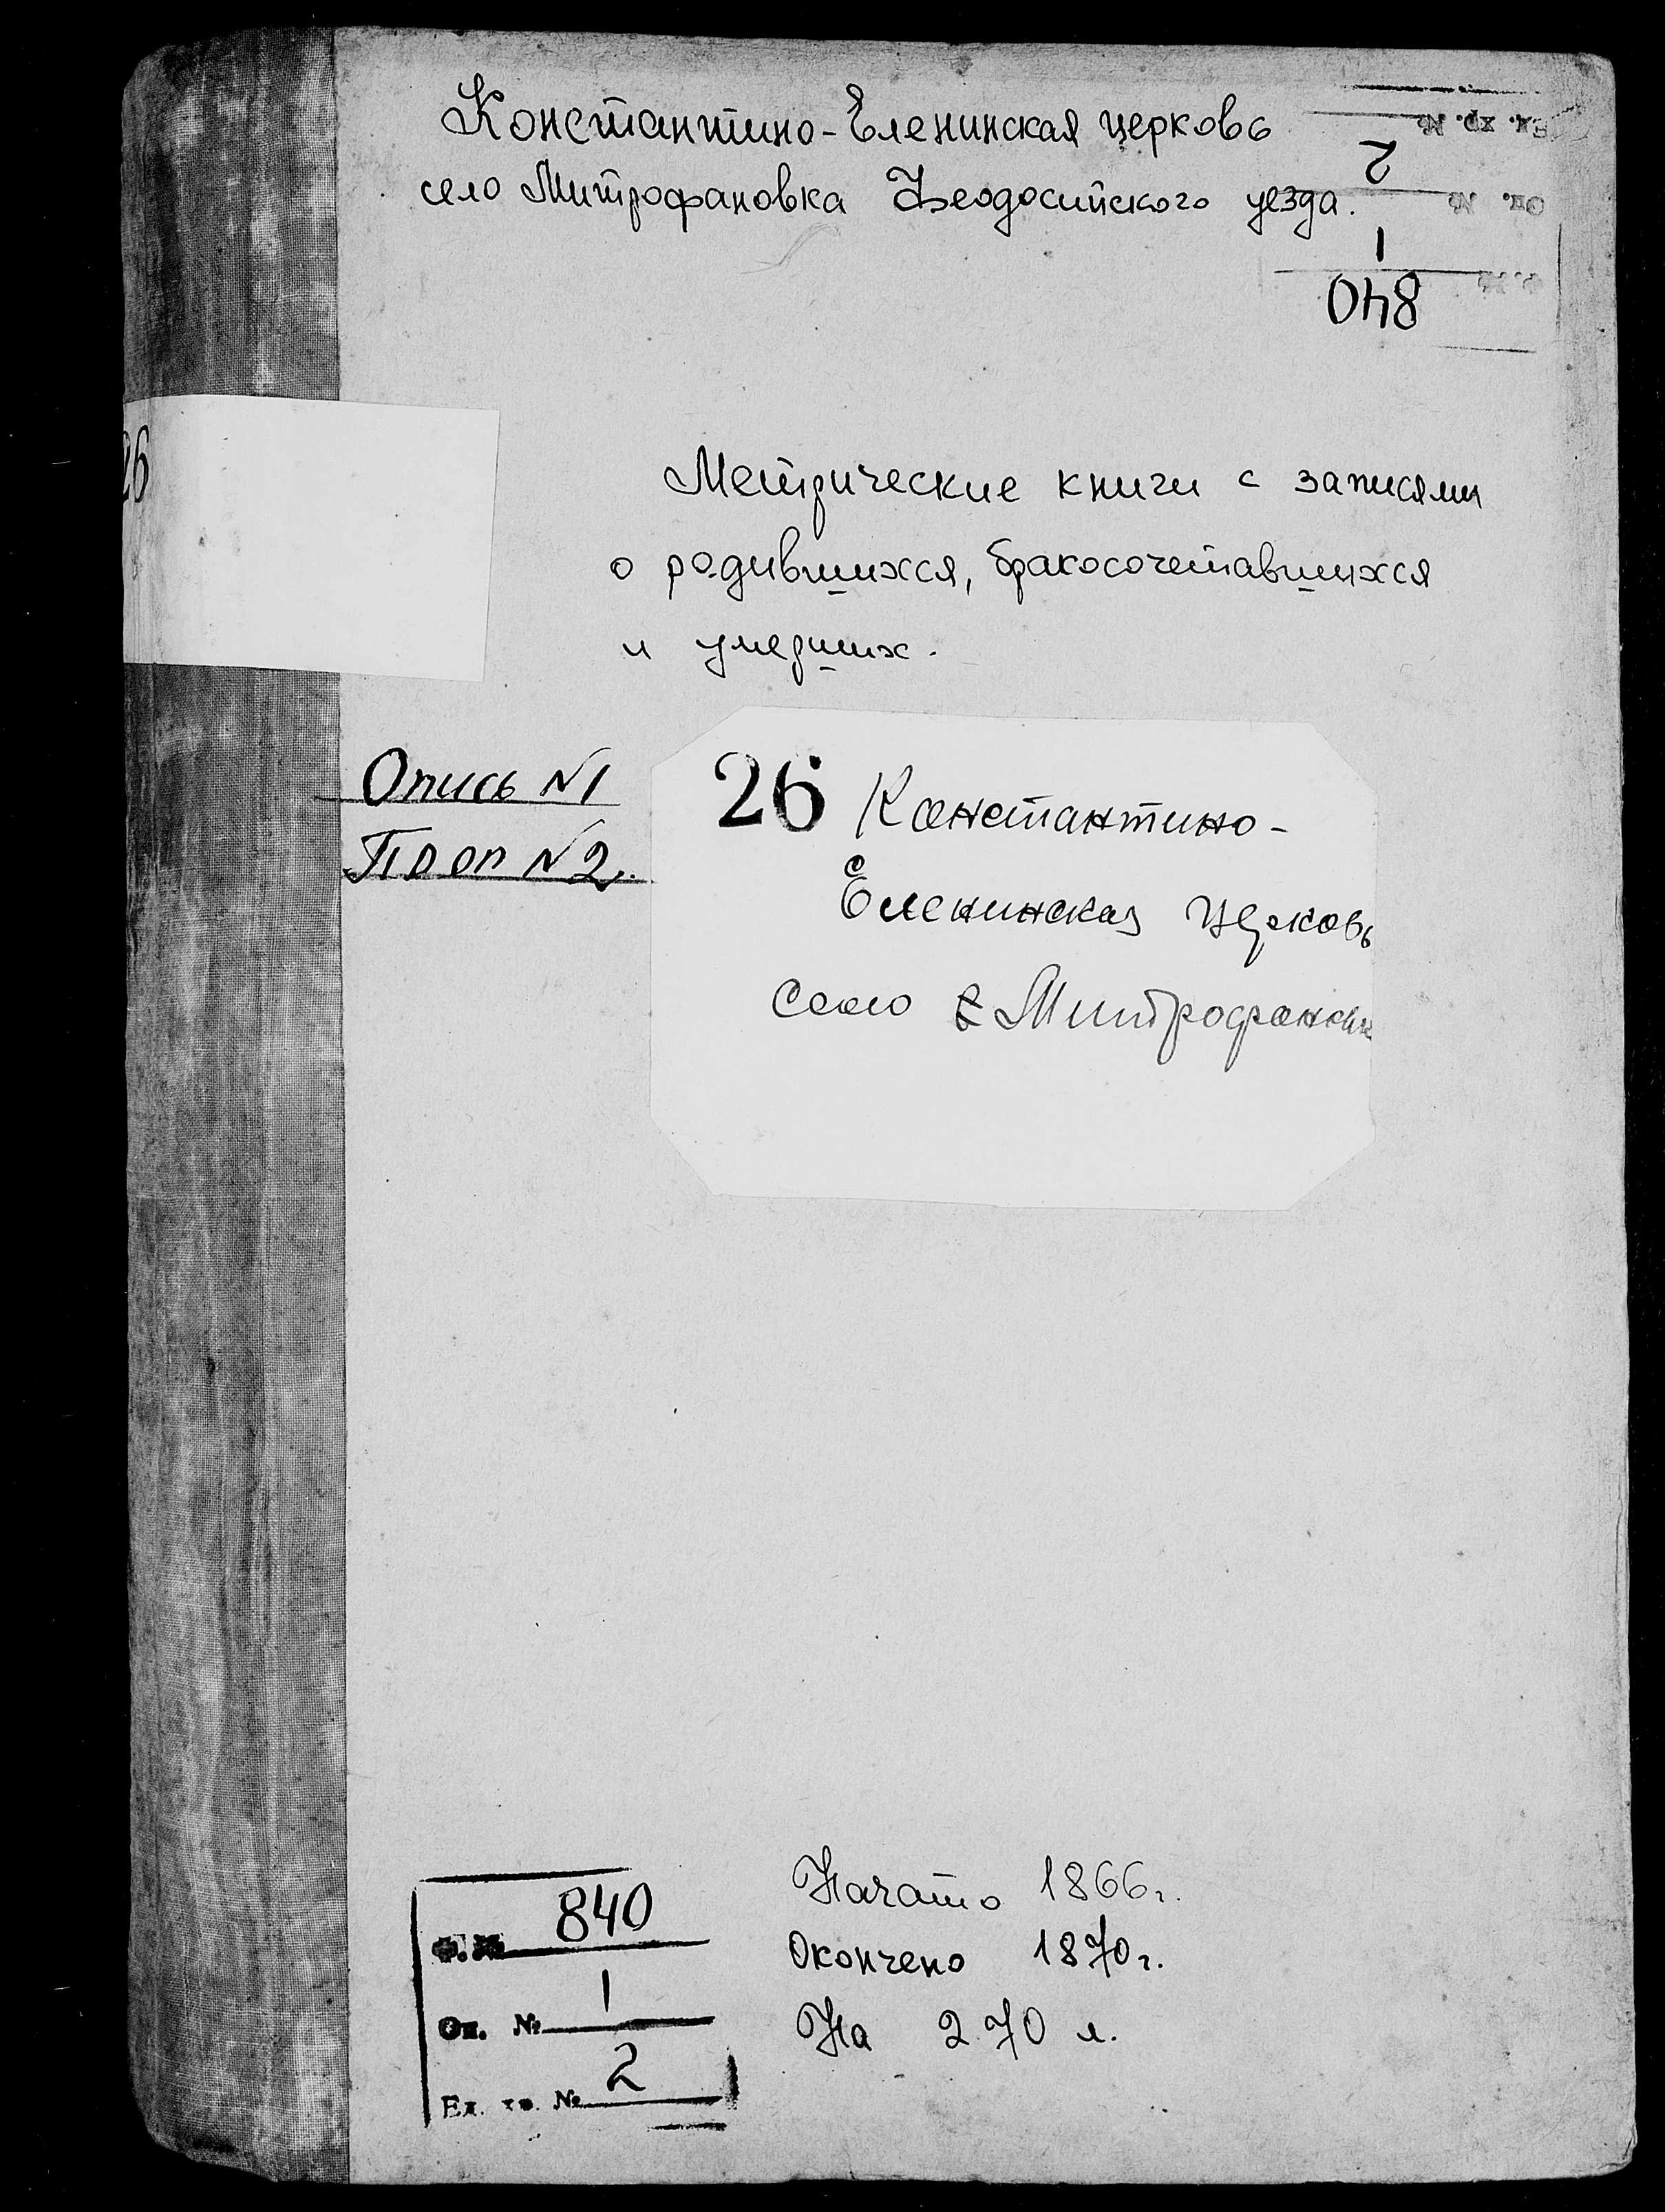 Константино-Еленинская церковь
село Митрофановка Феодосийского уезда.
Ед. хр. № 2
Оп. № 1
Ф. № 840
26
Метрические книги с записями
о родившихся, бракосочетавшихся
и умерших.
Опись №1
№2.
26 Константино-
Еленинская церковь
Село Митрофановк
Ф. № 840
Оп. № 1
Ед. хр. № 2
Начато 1866г.
Окончено 1870г.
На 270 л.